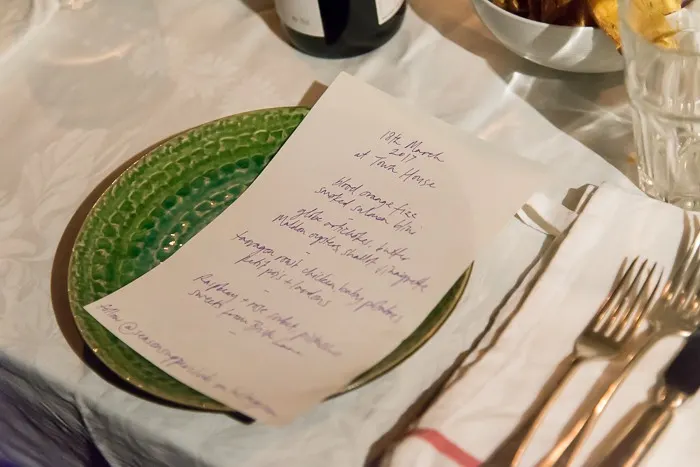 18th March
2017
at Town House
blood orange fizz
smoked salmon blini
-
globe artichokes, butter
Maldon oysters, shallot vinaigrette
-
tarragon roast chicken baby potatoes
petit pois + lardons
-
Raspberry + rose sorbet
sweets from
-
follow @ on instagram